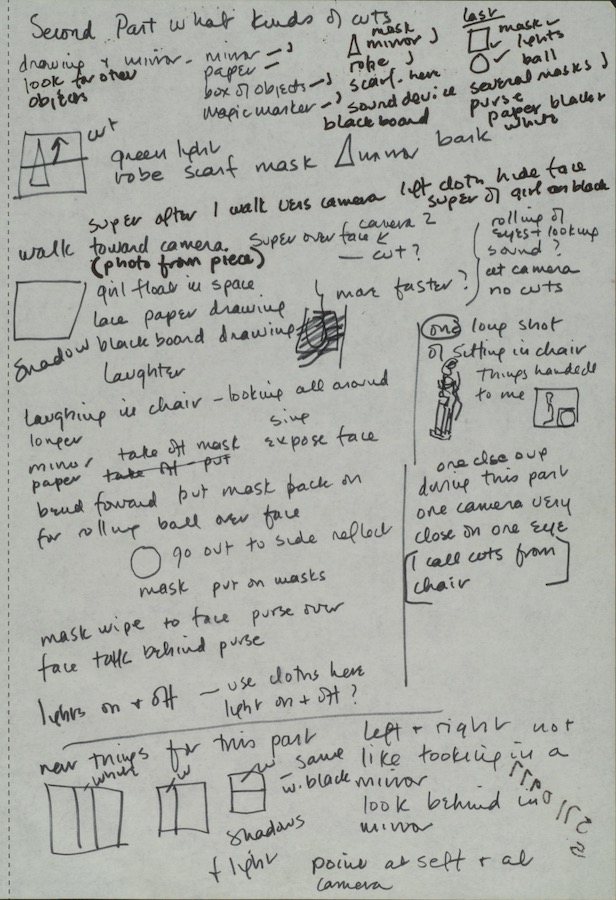 Second Part what kinds of cuts
drawing + mirror - mirror
look for other paper
objects box of objects
magic marker
mask
mirror
robe
scarf. here
sound device
blackboard
last
mask
lights
ball
several masks
purse
paper black or
white
cut
green light
robe scarf mask mirror
super after I walk camera left cloth hide face
super of girl on black
walk toward camera. super over face camera 2
(photo from piece) - cut?
rolling of
eyes + looking
sound?
at camera
no cuts
girl float in space
lace paper drawing
more faster?
shadow blackboard drawing
Laughter
one long shot
of sitting in chair
things handed
to me
Laughing in chair - looking all around
longer sing
mirror take off mask expose face
paper take off - put
bend foward put mask back on
for rolling ball over face
one close up
during this part
one camera very
close on one eye
[I call cuts from
chair]
go out to side reflect
mask put on masks
mask wipe to face purse over
face talk behind purse
lights on + off - use cloths here
light on + off?
new things for this part
white
w
w - same
w. black
shadows
+ light
left + right not
like looking in a
mirror
look behind in
mirror
point at self + at
camera